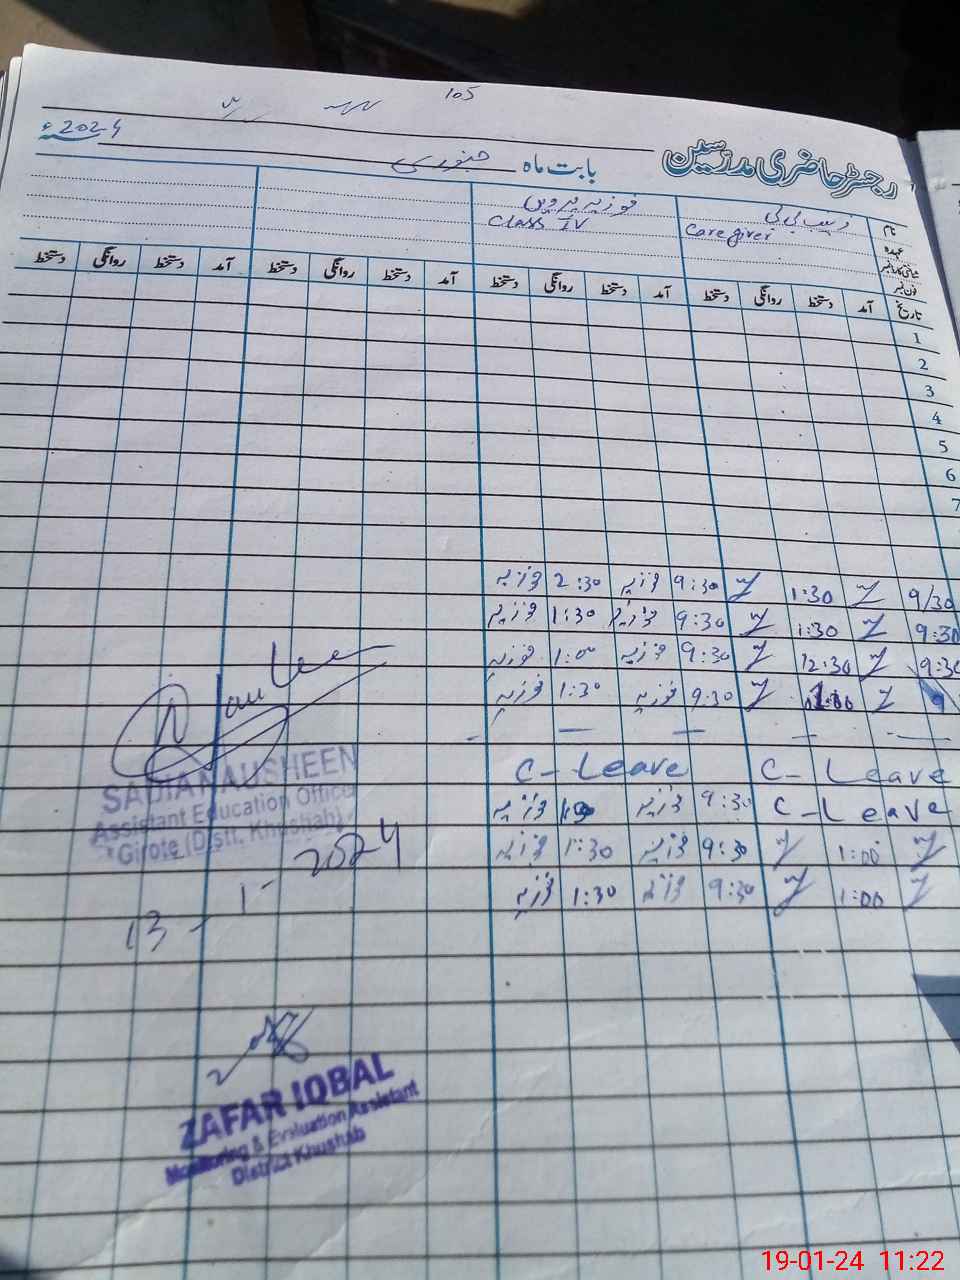 105
رجسٹر حاضری مدرسین بابت ماہ جنوری سنہ 2024ء
نام زیب بی بی فوزیہ پروین
عہدہ Caregiver Class IV
شناختی کارڈ نمبر
فون نمبر
تاریخ آمد دستخط روانگی دستخط آمد دستخط روانگی دستخط آمد دستخط روانگی دستخط آمد دستخط روانگی دستخط
1
2
3
4
5
6
7
9/30 1:30 9:30 فوزیہ 2:30 فوزیہ
9:30 1:30 9:30 فوزیہ 1:30 فوزیہ
9:30 12:30 9:30 فوزیہ 1:00 فوزیہ
9 1:00 9:30 فوزیہ 1:30 فوزیہ
— — — —
C- Leave C- Leave
9:30 فوزیہ فوزیہ C- Leave
1:00 9:30 فوزیہ 1:30 فوزیہ
1:00 9:30 فوزیہ 1:30 فوزیہ
SADIA NAUSHEEN
Assistant Education Officer
Girote (Distt. Khushab)
13-1-2024
ZAFAR IQBAL
Monitoring & Evaluation Assistant
District Khushab
19-01-24 11:22